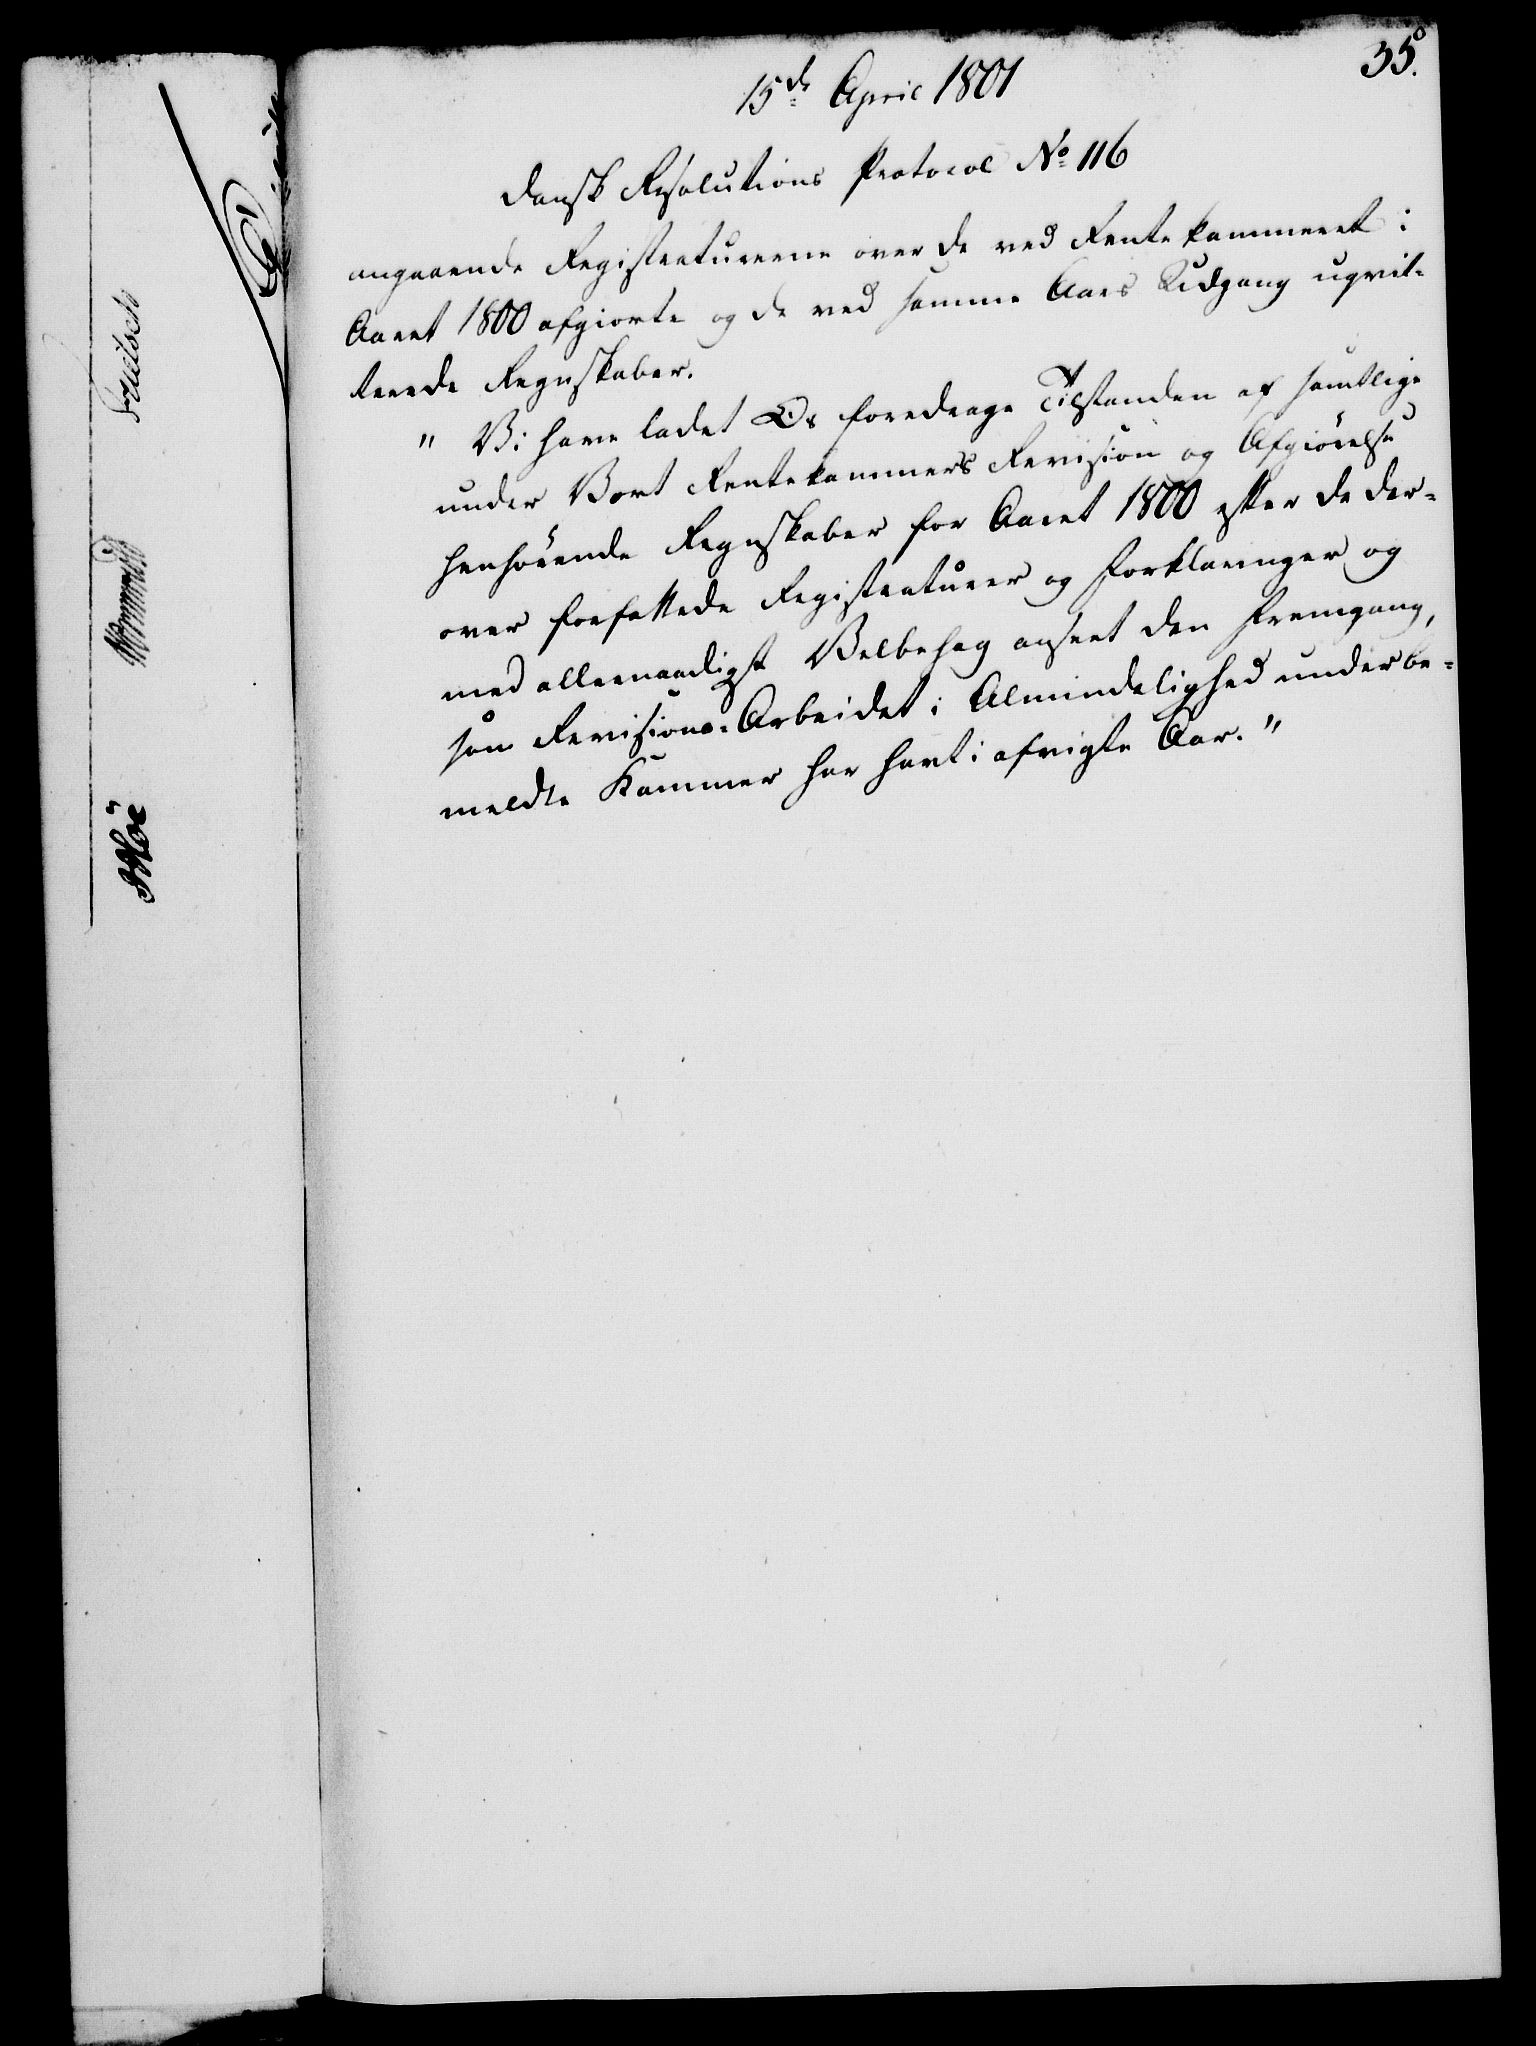 35.
15de April 1801
Dansk Resolutions Protocol No 116
angaaende Registraturerne over de ved Rentekammeret i
Aaret 1800 afgiorte og de ved samme Aars Udgang uqvit-
terede Regnskaber.
" Vi have ladet Os foredrage Tilstanden af samtlige
under Vort Rentekammers Revision og Afgiörelse
henhörende Regnskaber for Aaret 1800 efter de der-
over forfattede Registraturer og Forklaringer og
med allernaadigst Velbehag anseet den Fremgang,
som Revisions-Arbeidet i Almindelighed under be-
meldte Kammer har havt i afvigte Aar."